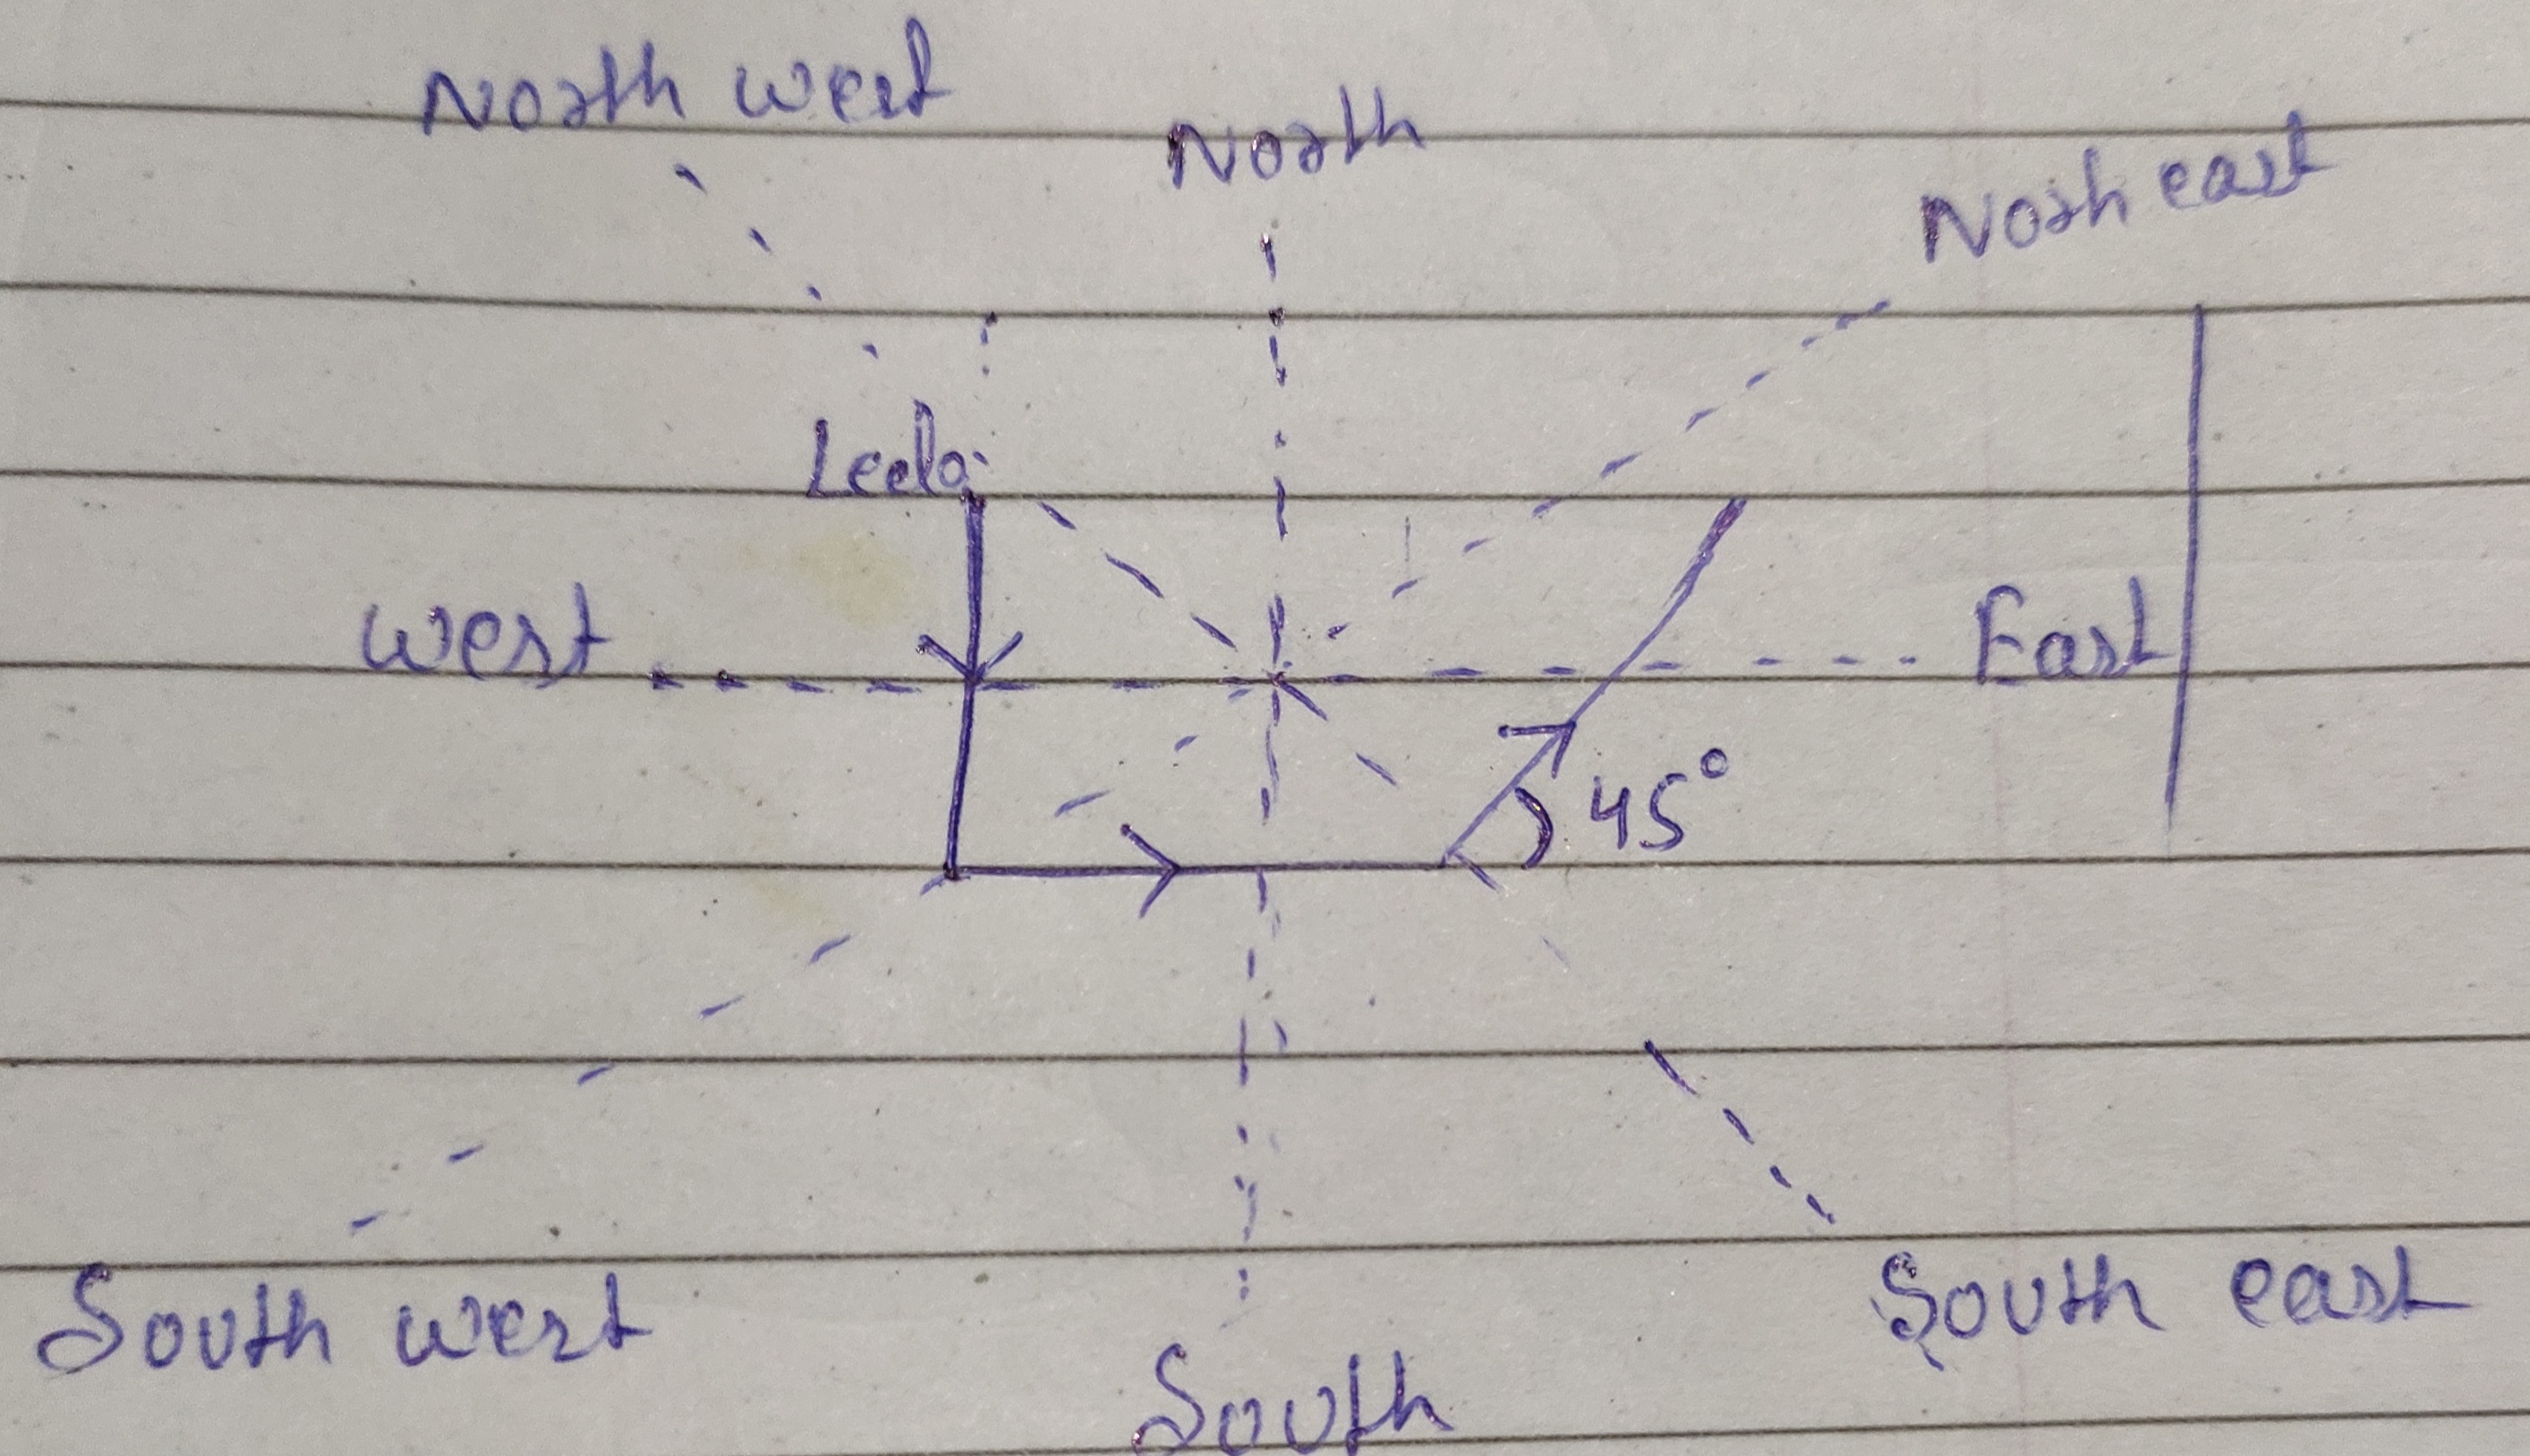 North west
North
North east
Leela
west
East
45°
South west
South east
South